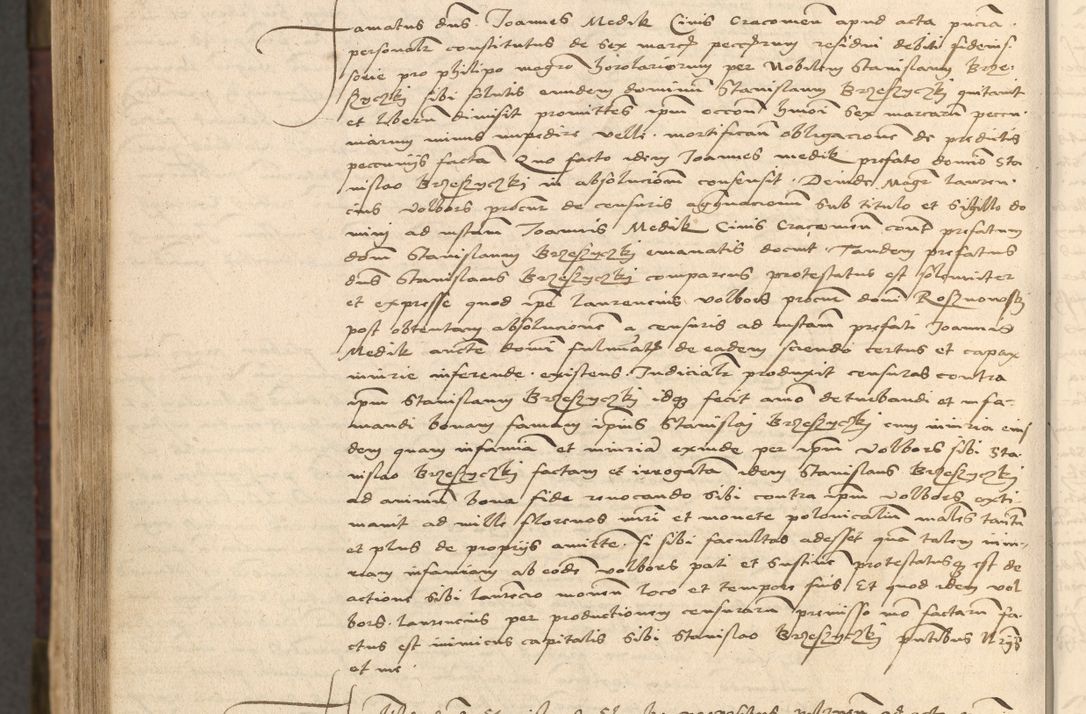 Famatus dns Joannes Medik Civis Cracovien apud acta pncia
personalr constitutus de sex marcis peccuniarum residui debiti fideius
sorie pro philipo magro horolariorum per Nobilem Stanislaum Brze
szyczkj sibi solutis eundem dominum Stanislaum Brzeszyczkj quitavit
et liberum dimisit promittes ipm occone hmoi sex marcarum peccu
niarum minus impedire velle mortificam obligacionem de predictis
peccunijs factam Quo facto idem Joannes medik prefato domino Sta
nislao Brzeszyczkj in absolucionem consensit Deinde Magr Lauren
cius Volbors procur de censuris aggravacionum sub titulo et sigillo do
minj ad instam Joannis Medik Civis Cracovien contra prefatum
dom Stanislaum Brzeszyczkj emanatis docuit Tandem prefatus
dns Stanislaus Brzeszyczkj comparens protestatus est solenniter
et expresse quod ipe Laurencius Volbors procur domi Rosznowskj
post obtentam absolucionem a censuris ad instam prefati Joannis
Medik aucte domi fulminatis de eadem sciendo certus et capax
iniurie inferende existens Judicialr produxit censuras contra
ipm Stanislaum Brzeszyczkj idq fecit amo deturbandi et infa
mandi bonam famam ipius Stanislaj Brzeszyczkj cum iniuria eius
dem quam infamiam et iniuria exinde per ipm Volbors sibi Sta
nislao Brzeszyczkj factam et irrogatam idem Stanislaus Brzeszyczkj
ad animum bona fide revocando sibi contra ipm Volbors exti
mavit ad mille florenos nri et monete polonicalium males tantum
et plus de proprijs amitte si sibi facultas adesset qua talem iniu
riam infamiam ab eode Volbors pati et sustine protestatusq est de
actione sibi laurecio movem loco et tempore suis Et quod idem Vol
bors laurencius per productionem censurarum premisso mo factarum fa
ctus est inimicus capitalis sibi Stanislao Brzeszyczkj pntibus
et me